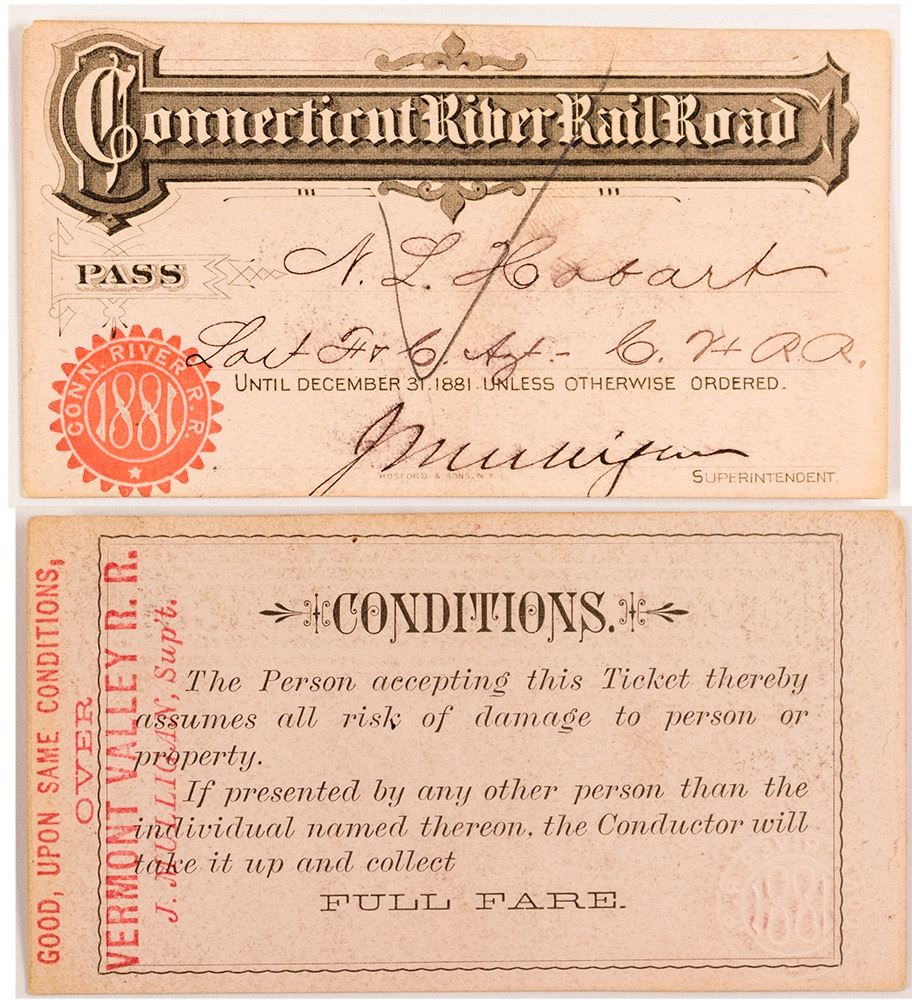 Connecticut River Rail Road
PASS N. L. Hobart
Frt & Agt. - C. H R.R.
UNTIL DECEMBER 31. 1881. UNLESS OTHERWISE ORDERED.
CONN. RIVER R. R.
1881
J Mulligan
HOSFORD & SONS. N. Y.
SUPERINTENDENT.
GOOD, UPON SAME CONDITIONS,
OVER
VERMONT VALLEY R. R.
J. MULLIGAN, Sup't.
CONDITIONS.
The Person accepting this Ticket thereby
assumes all risk of damage to person or
property.
If presented by any other person than the
individual named thereon, the Conductor will
take it up and collect
FULL FARE.
1881